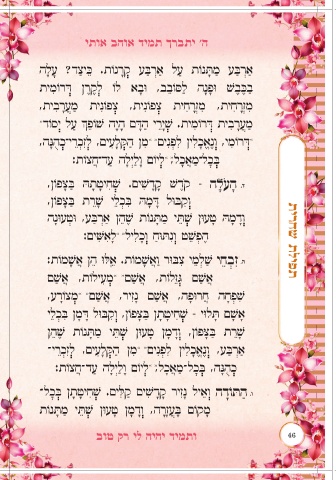 ה' יתברך תמיד אוהב אותי
אַרְבַּע מַתָּנוֹת עַל אַרְבַּע קְרָנוֹת. כֵּיצַד? עָלָה
בַכֶּבֶשׁ וּפָנָה לַסּוֹבֵב, וּבָא לוֹ לְקֶרֶן דְּרוֹמִית
מִזְרָחִית, מִזְרָחִית צְפוֹנִית, צְפוֹנִית מַעֲרָבִית,
מַעֲרָבִית דְּרוֹמִית. שְׁיָרֵי הַדָּם הָיָה שׁוֹפֵךְ עַל יְסוֹד־
דְּרוֹמִי, וְנֶאֱכָלִין לִפְנִים־מִן הַקְּלָעִים, לְזִכְרֵי־כְהֻנָּה,
בְּכָל־מַאֲכָל; לְיוֹם וָלַיְלָה עַד־חֲצוֹת:
ד. הָעוֹלָה - קֹדֶשׁ קָדָשִׁים. שְׁחִיטָתָהּ בַּצָּפוֹן,
וְקִבּוּל דָּמָהּ בִּכְלִי שָׁרֵת בַּצָּפוֹן,
וְדָמָהּ טָעוּן שְׁתֵּי מַתָּנוֹת שֶׁהֵן אַרְבַּע, וּטְעוּנָה
הֶפְשֵׁט וְנִתּוּחַ וְכָלִיל־לָאִשִּׁים:
ה. זִבְחֵי שַׁלְמֵי צִבּוּר וַאֲשָׁמוֹת. אֵלּוּ הֵן אֲשָׁמוֹת:
אֲשַׁם גְּזֵלוֹת, אֲשַׁם־מְעִילוֹת, אֲשַׁם
שִׁפְחָה חֲרוּפָה, אֲשַׁם נָזִיר, אֲשַׁם־מְצוֹרָע,
אָשָׁם תָּלוּי - שְׁחִיטָתָן בַּצָּפוֹן, וְקִבּוּל דָּמָן בִּכְלִי
שָׁרֵת בַּצָּפוֹן, וְדָמָן טָעוּן שְׁתֵּי מַתָּנוֹת שֶׁהֵן
אַרְבַּע, וְנֶאֱכָלִין לִפְנִים־מִן הַקְּלָעִים, לְזִכְרֵי־
כְהֻנָּה, בְּכָל־מַאֲכָל; לְיוֹם וָלַיְלָה עַד־חֲצוֹת:
ו. הַתּוֹדָה וְאֵיל נָזִיר קָדָשִׁים קַלִּים. שְׁחִיטָתָן בְּכָל־
מָקוֹם בָּעֲזָרָה, וְדָמָן טָעוּן שְׁתֵּי מַתָּנוֹת
ותמיד יהיה לי רק טוב
תפילת שחרית
46